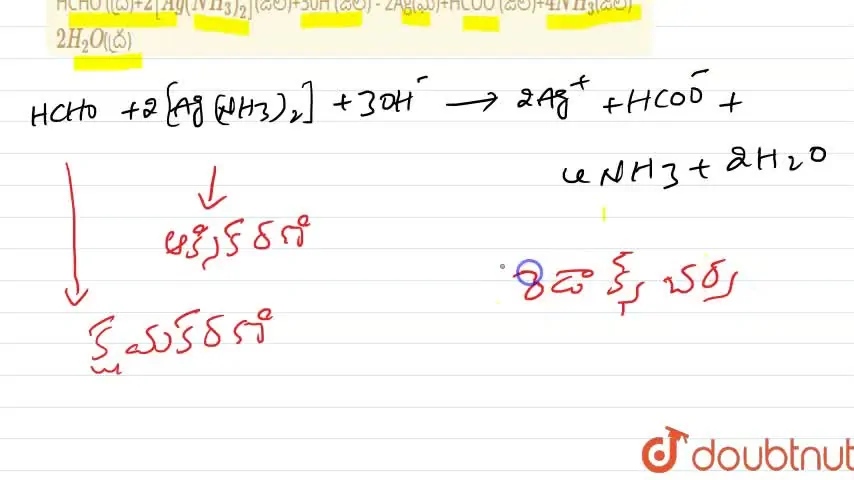 HCHO (ద్ర)+2[Ag(NH3)2](జల)+3OH (జల) - 2Ag(ఘ)+HCOO (జల)+4NH3(జల)
2H2O(ద్ర)
HCHO +2[Ag(NH3)2] +3OH⁻ → 2Ag⁺ +HCOO⁻ +
4NH3 + 2H2O
ఆక్సీకరణి
రెడాక్స్ చర్య
క్షయకరణి
doubtnut